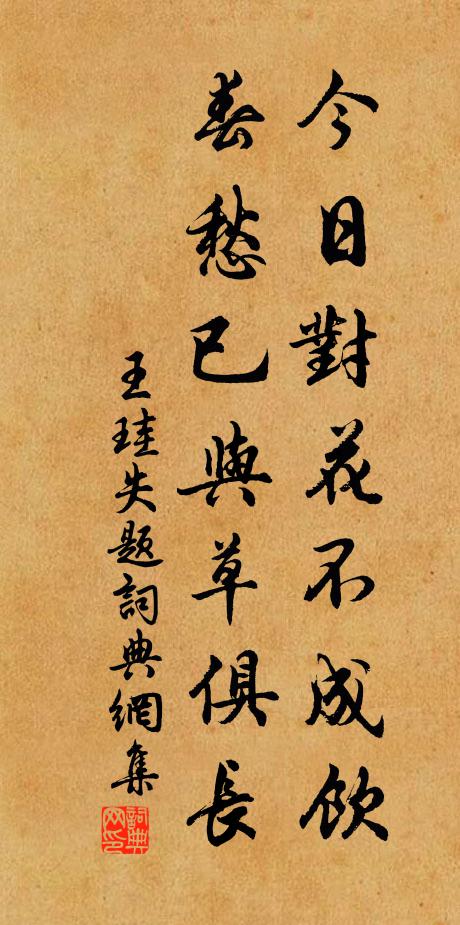 今日對花不成飲
春愁已與草俱長
王珪失題詞典網集
詞典网印